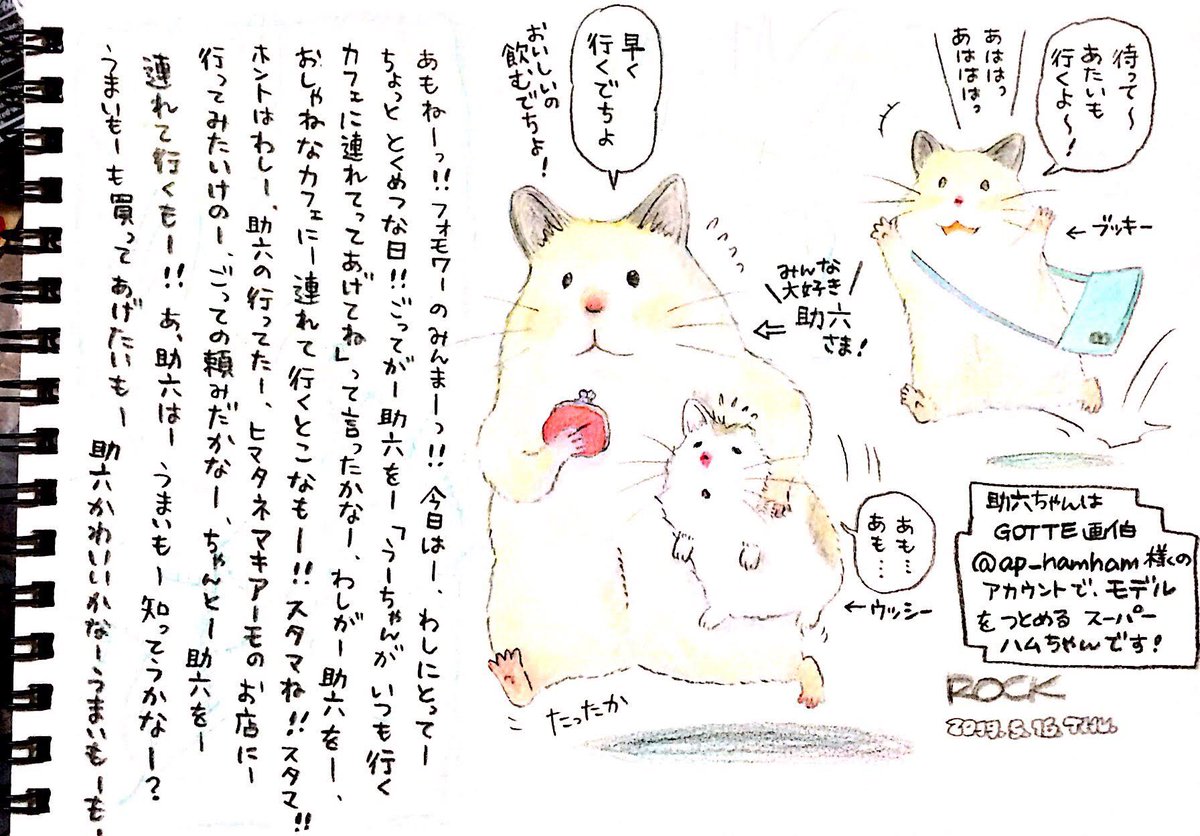 待って〜
あたいも
行くよ〜!
あははっ
あはははっ
←ブッキー
早く
行くでちよ
おいしいの
飲むでちよ!
みんな
大好き
助六
さま!
あも…
あも…
←ウッシー
たったか
助六ちゃんは
GOTTE画伯
@ap_hamham様くの
アカウントで、モデル
をつとめる スーパー
ハムちゃんです!
ROCK
2019.5.16.THU.
あもねーっ!!フォモワーのみんまーっ!! 今日はー、わしにとってー
ちょっと とくめつな日!!ごってがー助六をー「うーちゃんが いつも行く
カフェに連れてってあげてね」って言ったかなー、わしがー 助六をー、
おしゃねなカフェにー 連れて行くとこなもー!!スタマね!!スタマ!!
ホントはわしー、助六の行ってたー、ヒマタネマキアーモのお店にー
行ってみたいけのー、ごっての頼みだかなー、ちゃんとー 助六をー
連れて行くもー!! あ、助六はー うまいもー 知ってうかなー?
うまいもーも買ってあげたいもー 助六かわいいかなーうまいもーもー